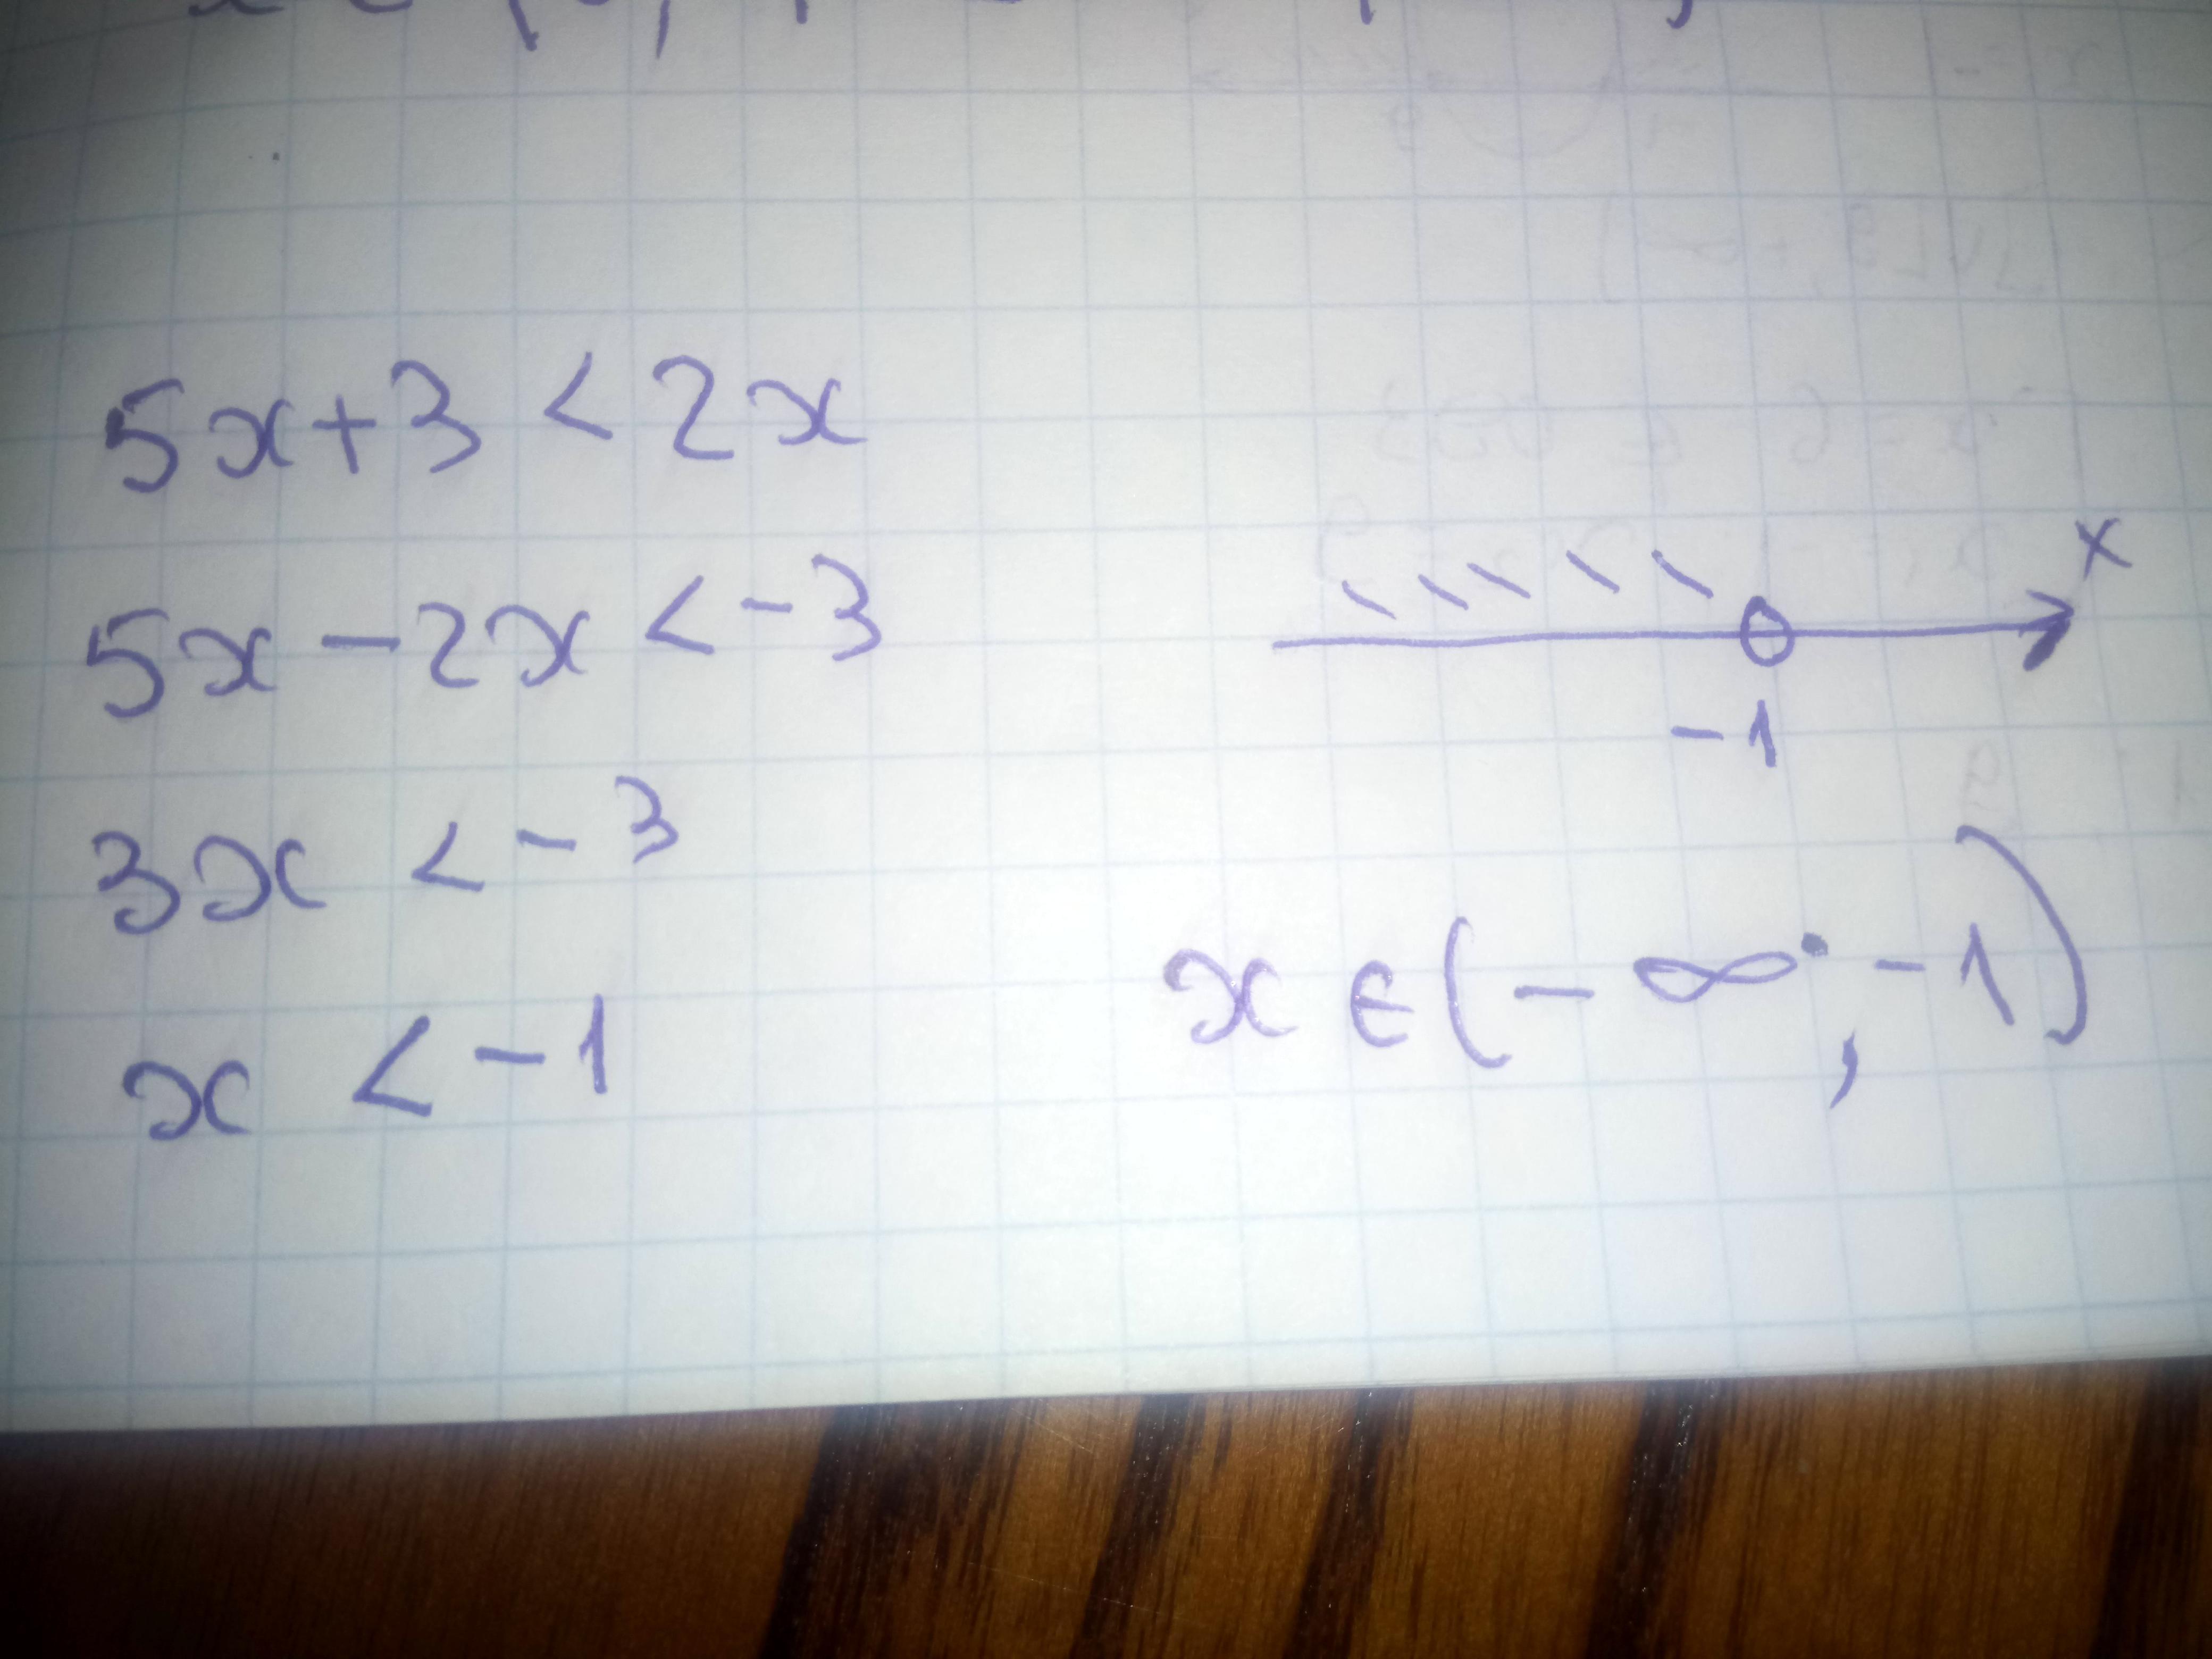 5x+3 < 2x
5x - 2x < -3
3x < -3
x < -1
x
-1
x ∈ (-∞; -1)